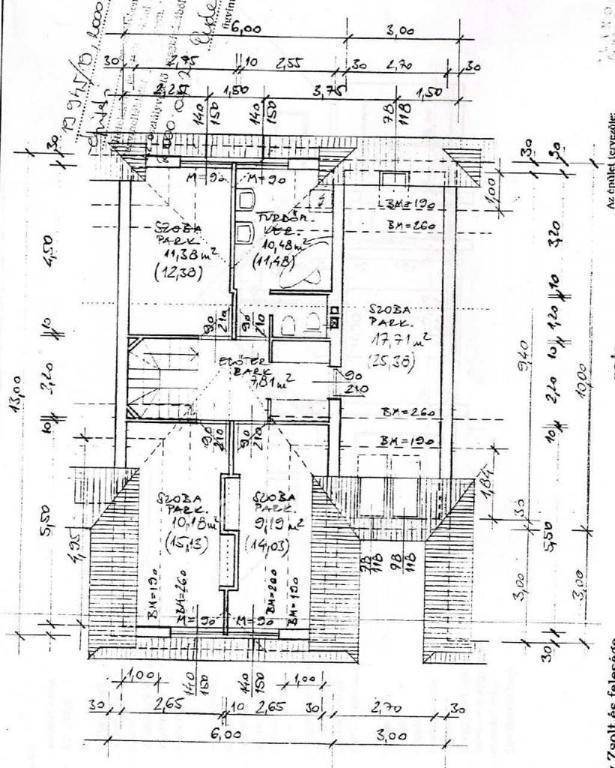 6,00 3,00
30 2,75 10 2,55 30 2,70 30
2,25 1,50 3,75 1,50
140 150
140 150
78 118
M=90 M=90
SZOBA
PARK.
11,38 m²
(12,38)
FÜRDŐR.
KER.
10,48 m²
(11,48)
BM=190
BM=260
SZOBA
PARK.
17,71 m²
(25,38)
90 210
90 210
ELŐTÉR
PARK
7,81 m²
90 210
BM=260
BM=190
90 210
90 210
SZOBA
PARK.
10,18 m²
(15,13)
SZOBA
PARK.
9,19 m²
(14,03)
BM=190
BM=260
BM=260
BM=190
M=90 M=90
78 118
98 118
30
4,50
10
2,20
10
5,50
13,00
4,95
30
1,00
9,40
1,84
30
3,00
30
3,20
10
1,20
10
2,20
10
5,50
30
10,00
3,00
1,00 140 150 140 150 1,00
30 2,65 10 2,65 30 2,70 30
6,00 3,00
Az épület tervezője:
Zsolt és felesége